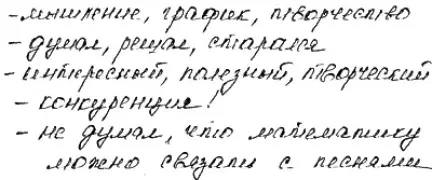 - мышление, график, творчество
- думал, решал, старался
- интересный, полезный, творческий
- конкуренция!
- не думал, что математику
можно связали с песнями